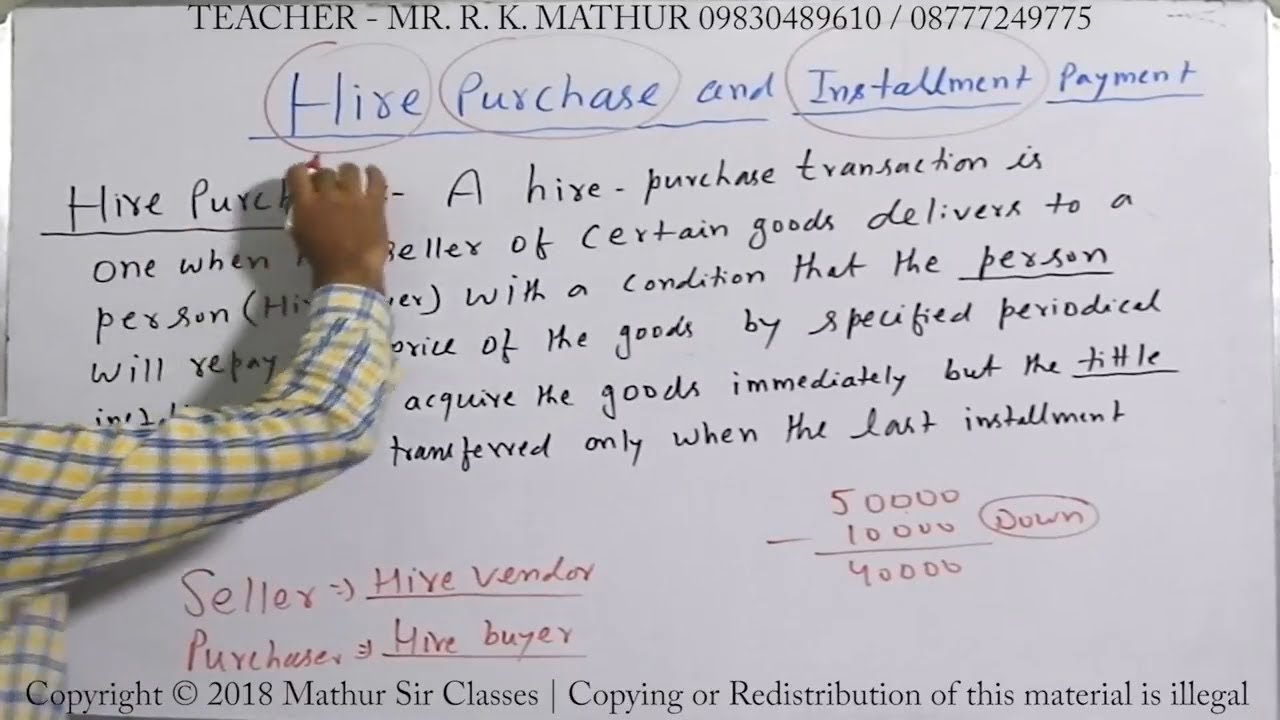 TEACHER - MR. R. K. MATHUR 09830489610 / 08777249775
Hire Purchase and Installment Payment
Hire Purch - A hire - purchase transaction is
one when seller of certain goods delivers to a
person (Hi er) with a condition that the person
will repay price of the goods by specified periodical
acquire the goods immediately but the tittle
transferred only when the last installment
50000
- 10000 Down
40000
Seller => Hire vendor
Purchaser => Hire buyer
Copyright © 2018 Mathur Sir Classes | Copying or Redistribution of this material is illegal